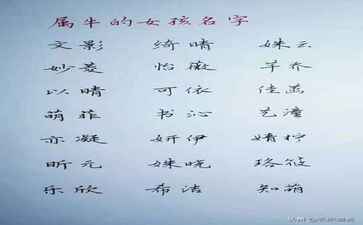 属牛的女孩名字
文影 绮晴 姝云
妙菱 怡薇 芊乔
以晴 可依 佳函
萌菲 书沁 艺潼
亦凝 妍伊 婧柠
昕元 姝晓 珞筱
乐欣 希洁 知萌